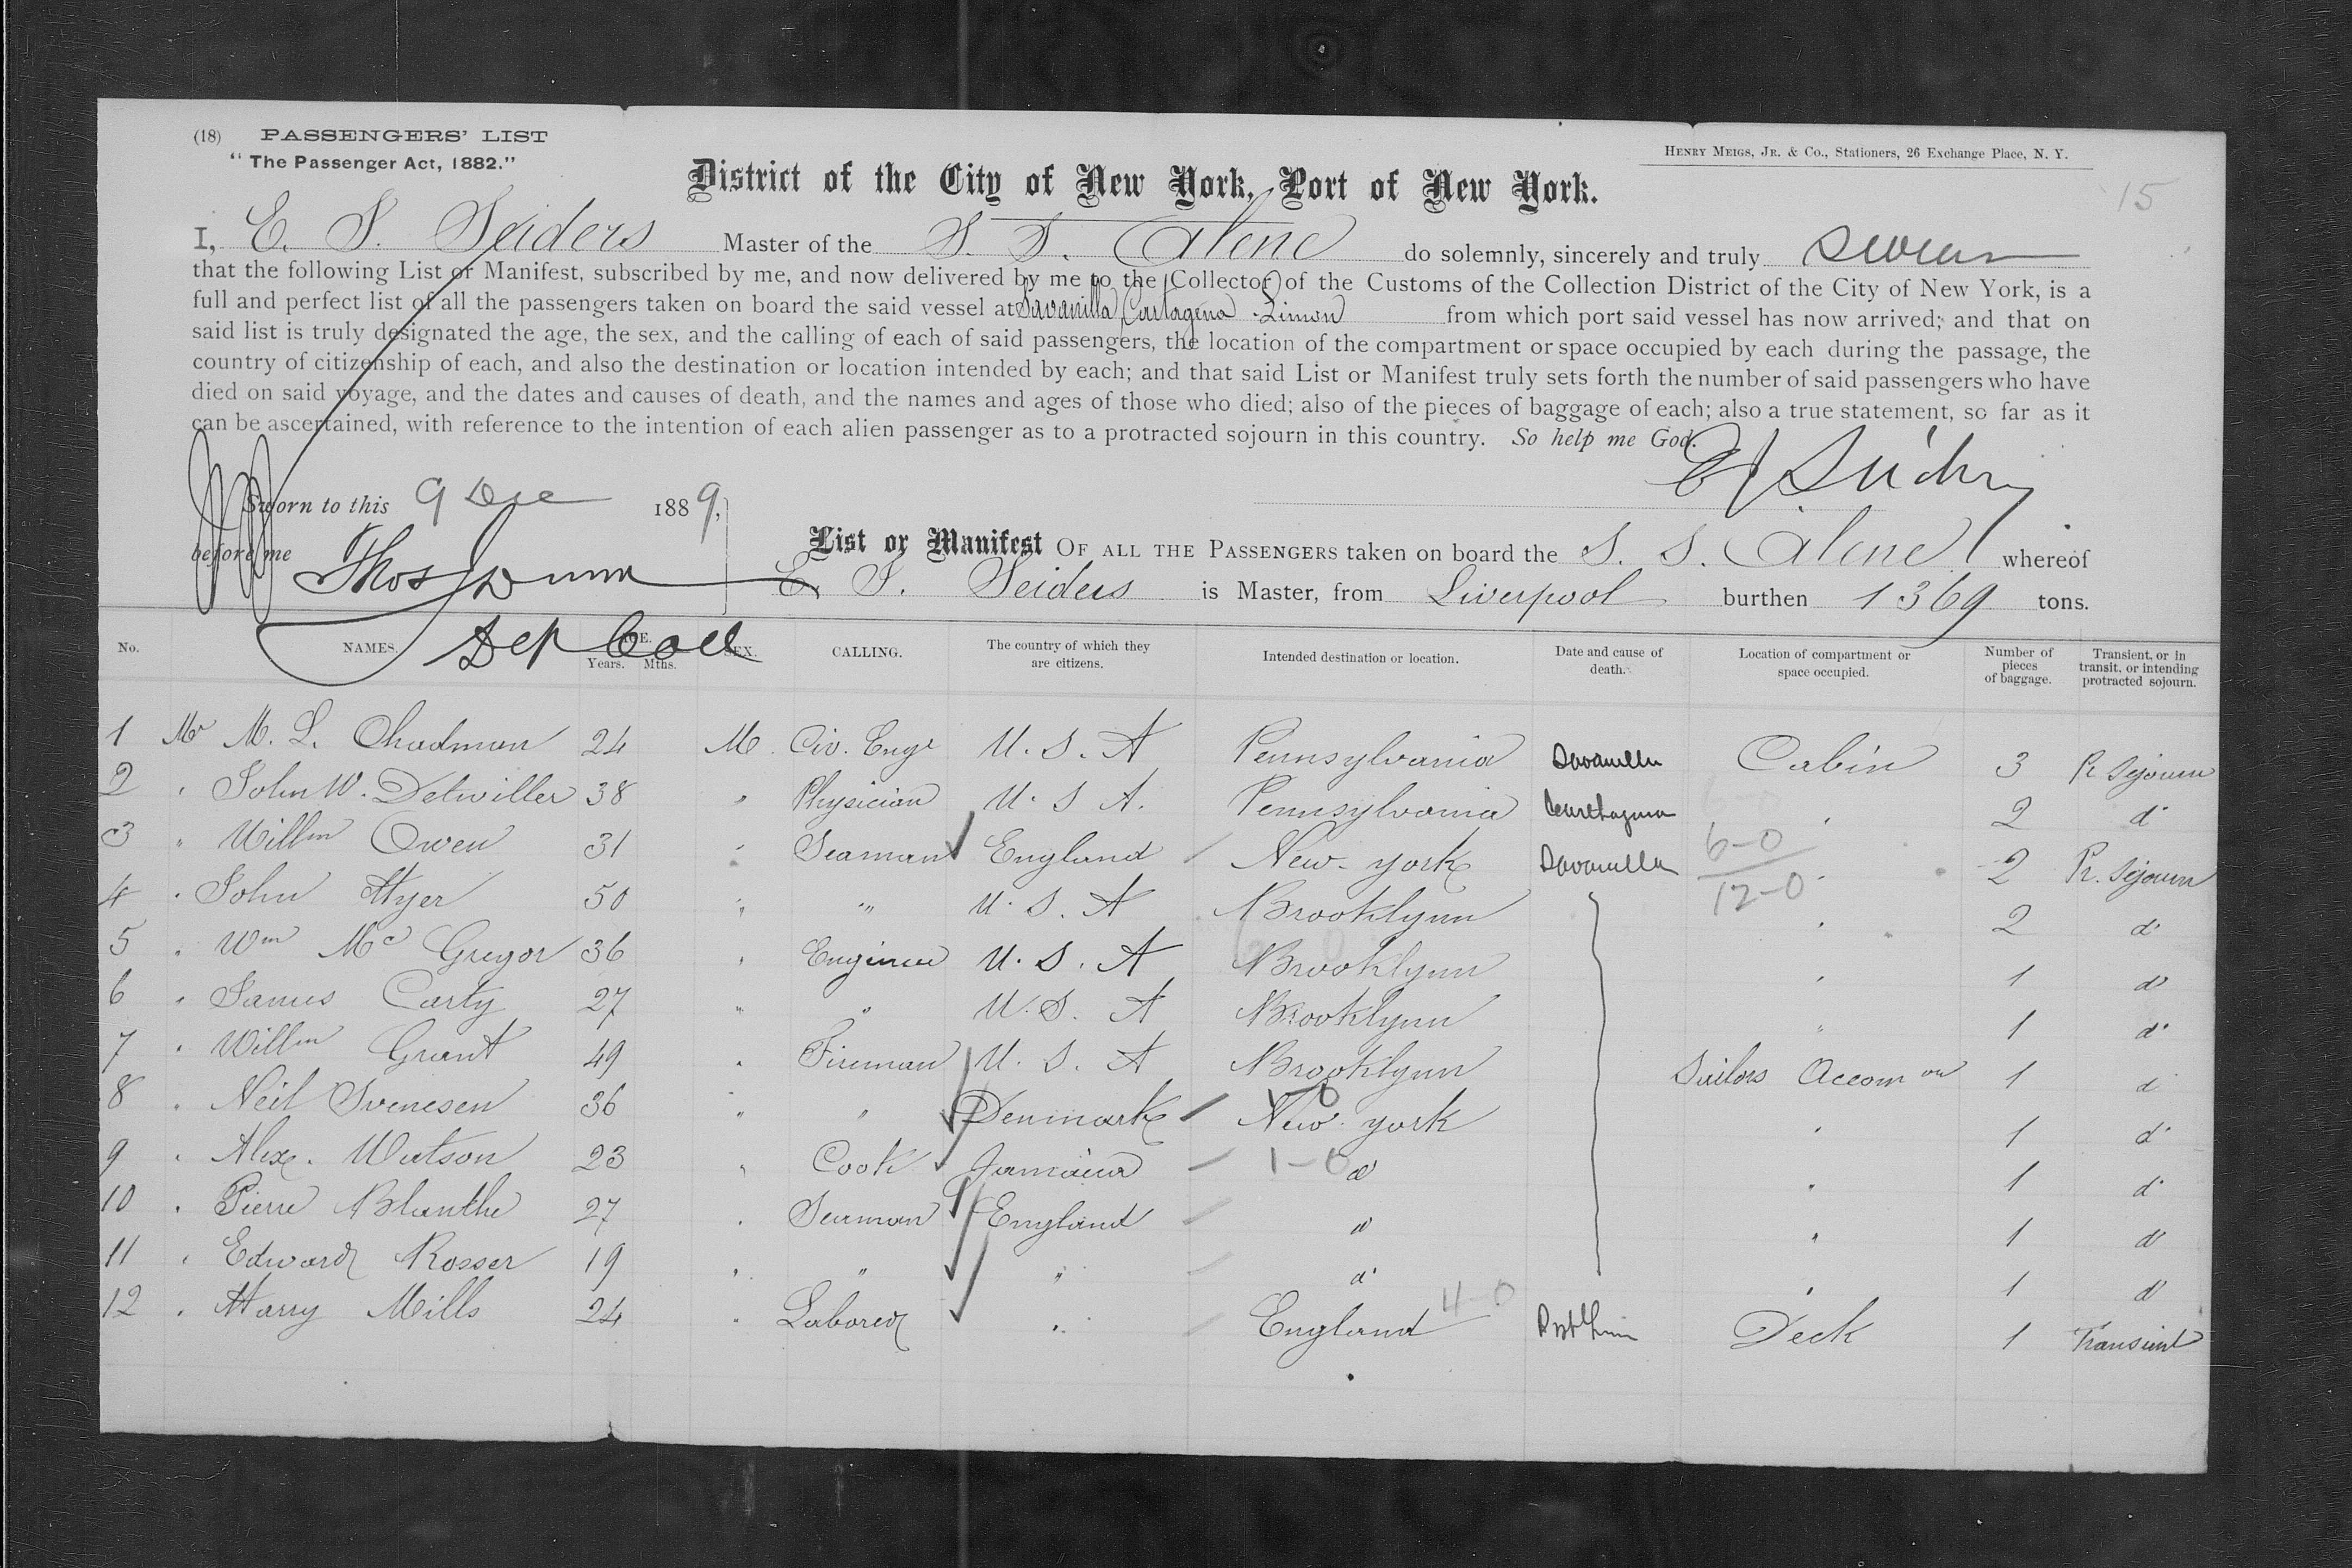 (18) PASSENGERS' LIST
"The Passenger Act, 1882."
HENRY MEIGS, JR. & Co., Stationers, 26 Exchange Place, N. Y.
15
District of the City of New York, Port of New York.
I, E. S. Seiders Master of the S. S. Alene do solemnly, sincerely and truly swear
that the following List or Manifest, subscribed by me, and now delivered by me to the Collector of the Customs of the Collection District of the City of New York, is a
full and perfect list of all the passengers taken on board the said vessel at Savanilla, Cartagena, Limon from which port said vessel has now arrived; and that on
said list is truly designated the age, the sex, and the calling of each of said passengers, the location of the compartment or space occupied by each during the passage, the
country of citizenship of each, and also the destination or location intended by each; and that said List or Manifest truly sets forth the number of said passengers who have
died on said voyage, and the dates and causes of death, and the names and ages of those who died; also of the pieces of baggage of each; also a true statement, so far as it
can be ascertained, with reference to the intention of each alien passenger as to a protracted sojourn in this country. So help me God.
Sworn to this 9 Dec 1889,
before me Thos Dunn
Dep Coll
List or Manifest OF ALL THE PASSENGERS taken on board the S. S. Alene whereof
E. S. Seiders is Master, from Liverpool burthen 1369 tons.
No. NAMES. AGE. Years. Mths. SEX. CALLING. The country of which they are citizens. Intended destination or location. Date and cause of death. Location of compartment or space occupied. Number of pieces of baggage. Transient, or in transit, or intending protracted sojourn.
1 Mr M. L. Chadman 24 M. Civ. Engr U. S. A Pennsylvania Savanilla Cabin 3 Pr Sojourn
2 " John W. Detwiller 38 " Physician U. S A. Pennsylvania Carthagena " 2 do
3 " Willm Owen 31 " Seaman England New-york Savanilla 6-0 " 2 Pr. Sojourn
4 " John Hyer 50 " " U. S. A Brooklynn 12-0 " 2 do
5 " Wm Mc Gregor 36 " Engineer U. S. A Brooklynn " 1 do
6 " James Carty 27 " " U. S. A Brooklynn " 1 do
7 " Willm Grant 49 " Fireman U. S. A Brooklynn Sailors Accomon 1 do
8 " Neil Svenesen 36 " " Denmark New-york " 1 do
9 " Alex. Watson 23 " Cook Jamaica 1-0 do " 1 do
10 " Pierre Blanthe 27 " Seaman England " " 1 do
11 " Edward Rosser 19 " " " do " 1 do
12 " Harry Mills 24 " Laborer " England 4-0 Deck 1 Transient